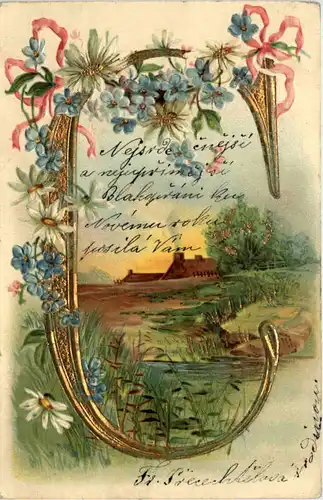 Nejsrdečnější
a nejupřímější
Blahopřání ku
Novému roku
posílá Vám
Fr.